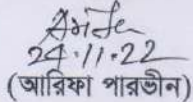 24.11.22
(আরিফা পারভীন)